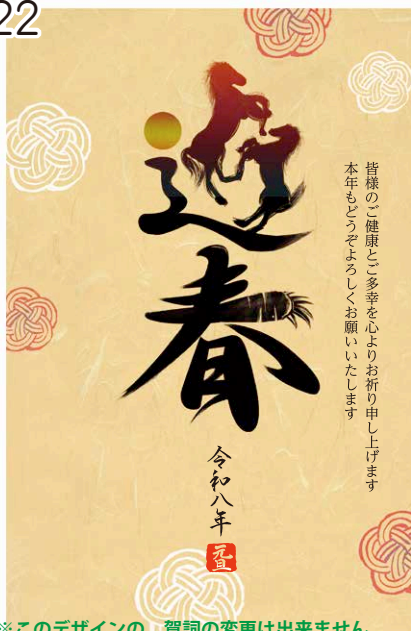 22
迎春
皆様のご健康とご多幸を心よりお祈り申し上げます
本年もどうぞよろしくお願いいたします
令和八年
元旦
※このデザインの、賀詞の変更は出来ません